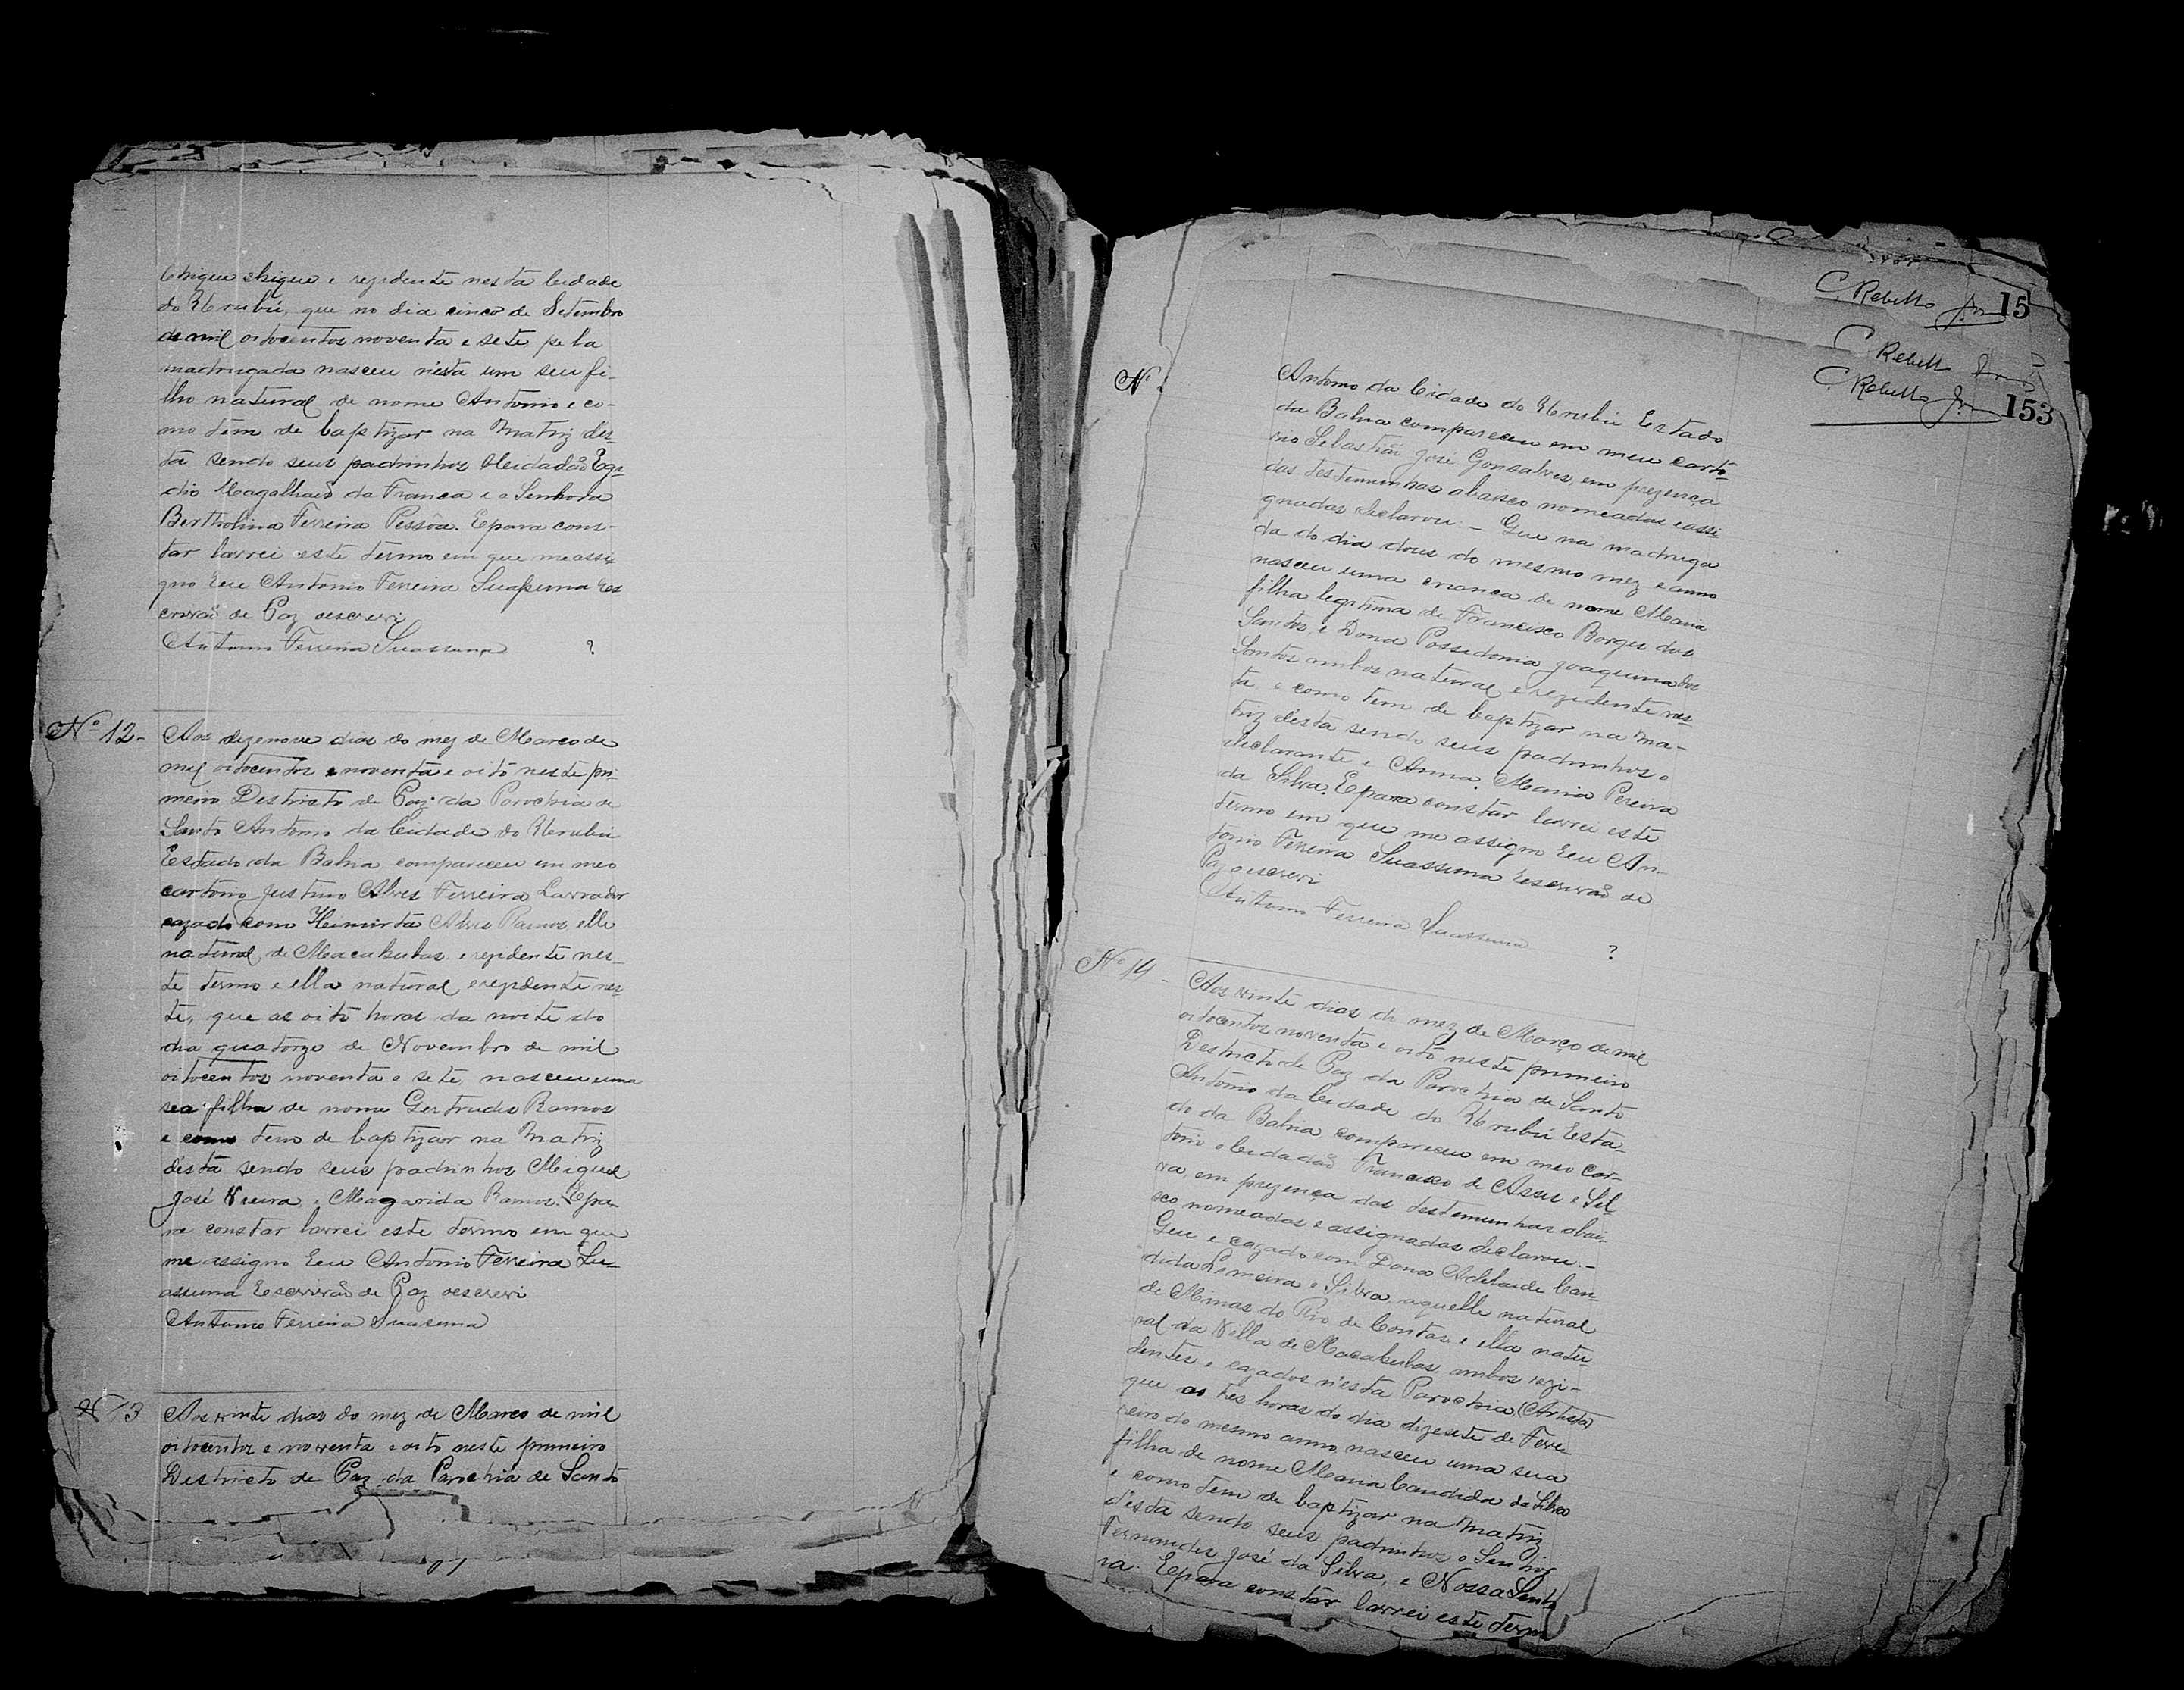 Chique chique e rezidente nesta Cidade
do Urubú, que no dia cinco de Setembro
de mil oitocentos noventa e sete pela
madrugada nasceu nésta um seu fi-
lho natural de nome Antonio e co-
mo tem de baptizar na Matriz des-
ta sendo seus padrinhos o Cidadão Egi-
dio Magalhães da Franca e a Senhora
Bertholina Ferreira Pessôa. E para cons-
tar lavrei este termo em que me assi-
gno Eu Antonio Ferreira Suassuna Es
crivão de Paz o escrevi
Antonio Ferreira Suassuna ?
Nº 12-
Aos dezenove dias do mez de Março de
mil oitocentos e noventa e oito neste pri-
meiro Destricto de Paz da Parochia de
Santo Antonio da Cidade do Urubú
Estado da Bahia compareceu em meo
cartorio Justino Alves Ferreira Lavrador
cazado com Alves Ramos elle
natural de Macahubas e rezidente nes-
te termo e ella natural e rezidente nes-
te, que as oito horas da noite do
dia quatorze de Novembro de mil
oitocentos noventa e sete, nasceu uma
sua filha de nome Gertrudes Ramos
e como tem de baptizar na Matriz
désta sendo seus padrinhos Miguel
José Vieira, e Magarida Ramos. E pa-
ra constar lavrei este termo em que
me assigno Eu Antonio Ferreira Su-
assuna Escrivão de Paz o escrevi
Antonio Ferreira Suasuna
Nº 13
Aos vinte dias do mez de Março de mil
oitocentos e noventa e oito neste primeiro
Destricto de Paz da Parochia de Santo
C. Rebello Jnr 15
C Rebello
C. Rebello Jnr 153
Nº
Antonio da Cidade do Urubú Estado
da Bahia compareceu em meu carto-
rio Sebastião José Gonsalves, em prezença
das testemunhas abaixo nomeadas e assi
gnadas declarou:- Que na madruga
da do dia dous do mesmo mez e anno
nasceu uma crianca de nome Maria
filha legitima de Francisco Borges dos
Santos, e Dona Possidonia Joaquina dos
Santos ambos natural e rezidente nes-
ta e como tem de baptizar na Ma-
triz désta sendo seus padrinhos o
declarante e Anna Maria Pereira
da Silva. E para constar lavrei este
termo em que me assigno Eu An-
tonio Ferreira Suassuna Escrivão de
Paz o escrevi
Antonio Ferreira Suassuna ?
Nº 14 -
Aos vinte dias do mez de Março de mil
oitocentos noventa e oito neste primeiro
Destricto de Paz da Parochia de Santo
Antonio da Cidade do Urubú Esta-
do da Bahia compareceu em meo car-
torio o Cidadão Francisco de Assis e Sil-
va, em prezença das testemunhas abai-
xo nomeadas e assignadas declarou:-
Que e cazado com Dona Adelaide Can-
dida e Silva, aquelle natural
de Minas do Rio de Contas e ella natu-
ral da Villa de Macahubas ambos rezi-
dentes e cazados n'ésta Parochia (Artista)
que as tres horas do dia dizesete de Feve-
reiro do mesmo anno nasceu uma sua
filha de nome Maria Candida da Silva
e como tem de baptizar na Matriz
d'ésta sendo seus padrinhos o Senhor
Fernandes José da Silva, e Nossa Senho
ra. E para constar lavrei este termo